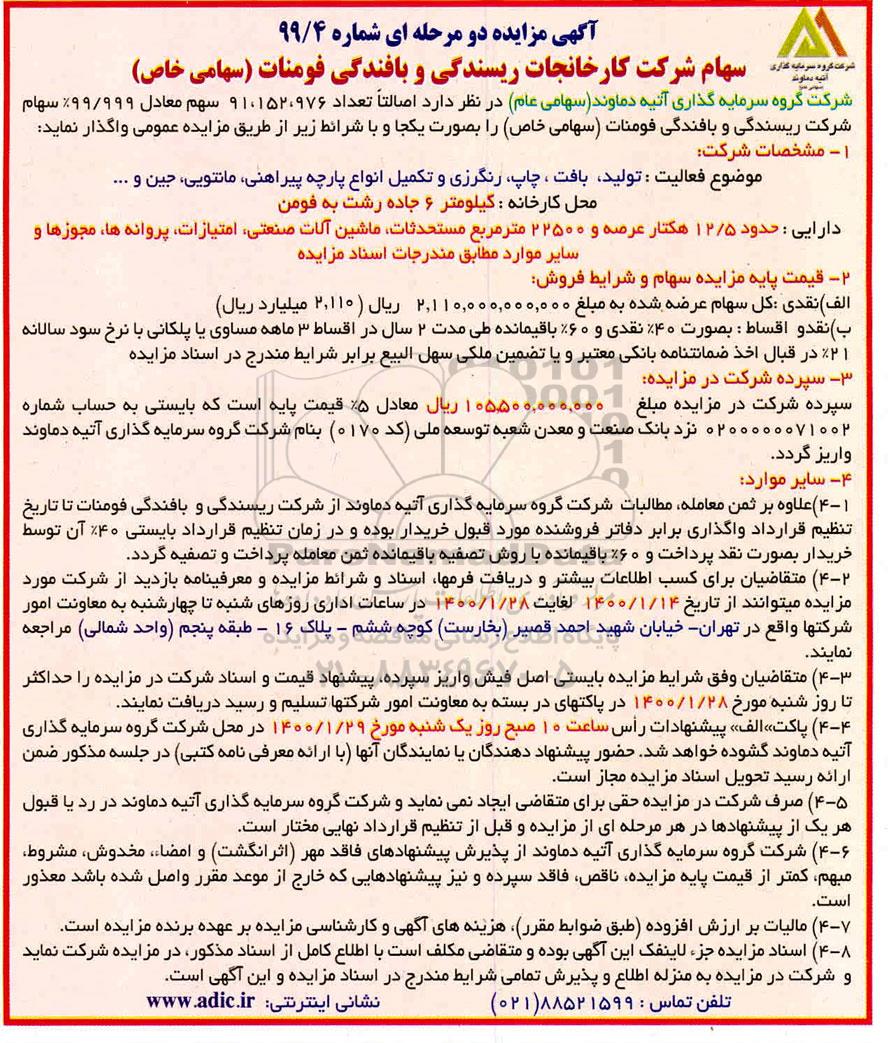 آگهی مزایده دو مرحله ای شماره ۹۹/۴
شرکت گروه سرمایه گذاری
آتیه دماوند
(سهامی عام)
سهام شرکت کارخانجات ریسندگی و بافندگی فومنات (سهامی خاص)
شرکت گروه سرمایه گذاری آتیه دماوند(سهامی عام) در نظر دارد اصالتاً تعداد ۹۱،۱۵۲،۹۷۶ سهم معادل ۹۹/۹۹۹٪ سهام
شرکت ریسندگی و بافندگی فومنات (سهامی خاص) را بصورت یکجا و با شرائط زیر از طریق مزایده عمومی واگذار نماید:
۱- مشخصات شرکت:
موضوع فعالیت : تولید، بافت ، چاپ، رنگرزی و تکمیل انواع پارچه پیراهنی، مانتویی، جین و ...
محل کارخانه : کیلومتر ۶ جاده رشت به فومن
دارایی : حدود ۱۲/۵ هکتار عرصه و ۲۲۵۰۰ مترمربع مستحدثات، ماشین آلات صنعتی، امتیازات، پروانه ها، مجوزها و
سایر موارد مطابق مندرجات اسناد مزایده
۲- قیمت پایه مزایده سهام و شرایط فروش:
الف)نقدی :کل سهام عرضه شده به مبلغ ۲،۱۱۰،۰۰۰،۰۰۰،۰۰۰ ریال ( ۲،۱۱۰ میلیارد ریال)
ب)نقدو اقساط : بصورت ۴۰٪ نقدی و ۶۰٪ باقیمانده طی مدت ۲ سال در اقساط ۳ ماهه مساوی یا پلکانی با نرخ سود سالانه
۲۱٪ در قبال اخذ ضمانتنامه بانکی معتبر و یا تضمین ملکی سهل البیع برابر شرایط مندرج در اسناد مزایده
۳- سپرده شرکت در مزایده:
سپرده شرکت در مزایده مبلغ ۱۰۵،۵۰۰،۰۰۰،۰۰۰ ریال معادل ۵٪ قیمت پایه است که بایستی به حساب شماره
۰۲۰۰۰۰۰۰۷۱۰۰۲ نزد بانک صنعت و معدن شعبه توسعه ملی (کد ۰۱۷۰) بنام شرکت گروه سرمایه گذاری آتیه دماوند
واریز گردد.
۴- سایر موارد:
۴-۱)علاوه بر ثمن معامله، مطالبات شرکت گروه سرمایه گذاری آتیه دماوند از شرکت ریسندگی و بافندگی فومنات تا تاریخ
تنظیم قرارداد واگذاری برابر دفاتر فروشنده مورد قبول خریدار بوده و در زمان تنظیم قرارداد بایستی ۴۰٪ آن توسط
خریدار بصورت نقد پرداخت و ۶۰٪ باقیمانده با روش تصفیه باقیمانده ثمن معامله پرداخت و تصفیه گردد.
۴-۲) متقاضیان برای کسب اطلاعات بیشتر و دریافت فرمها، اسناد و شرائط مزایده و معرفینامه بازدید از شرکت مورد
مزایده میتوانند از تاریخ ۱۴۰۰/۱/۱۴ لغایت ۱۴۰۰/۱/۲۸ در ساعات اداری روزهای شنبه تا چهارشنبه به معاونت امور
شرکتها واقع در تهران- خیابان شهید احمد قصیر (بخارست) کوچه ششم - پلاک ۱۶ - طبقه پنجم (واحد شمالی) مراجعه
نمایند.
۴-۳) متقاضیان وفق شرایط مزایده بایستی اصل فیش واریز سپرده، پیشنهاد قیمت و اسناد شرکت در مزایده را حداکثر
تا روز شنبه مورخ ۱۴۰۰/۱/۲۸ در پاکتهای در بسته به معاونت امور شرکتها تسلیم و رسید دریافت نمایند.
۴-۴) پاکت»الف» پیشنهادات رأس ساعت ۱۰ صبح روز یک شنبه مورخ ۱۴۰۰/۱/۲۹ در محل شرکت گروه سرمایه گذاری
آتیه دماوند گشوده خواهد شد. حضور پیشنهاد دهندگان یا نمایندگان آنها (با ارائه معرفی نامه کتبی) در جلسه مذکور ضمن
ارائه رسید تحویل اسناد مزایده مجاز است.
۴-۵) صرف شرکت در مزایده حقی برای متقاضی ایجاد نمی نماید و شرکت گروه سرمایه گذاری آتیه دماوند در رد یا قبول
هر یک از پیشنهادها در هر مرحله ای از مزایده و قبل از تنظیم قرارداد نهایی مختار است.
۴-۶) شرکت گروه سرمایه گذاری آتیه دماوند از پذیرش پیشنهادهای فاقد مهر (اثرانگشت) و امضاء، مخدوش، مشروط،
مبهم، کمتر از قیمت پایه مزایده، ناقص، فاقد سپرده و نیز پیشنهادهایی که خارج از موعد مقرر واصل شده باشد معذور
است.
۴-۷) مالیات بر ارزش افزوده (طبق ضوابط مقرر)، هزینه های آگهی و کارشناسی مزایده بر عهده برنده مزایده است.
۴-۸) اسناد مزایده جزء لاینفک این آگهی بوده و متقاضی مکلف است با اطلاع کامل از اسناد مذکور، در مزایده شرکت نماید
و شرکت در مزایده به منزله اطلاع و پذیرش تمامی شرایط مندرج در اسناد مزایده و این آگهی است.
تلفن تماس : ۸۸۵۲۱۵۹۹(۰۲۱) نشانی اینترنتی: www.adic.ir